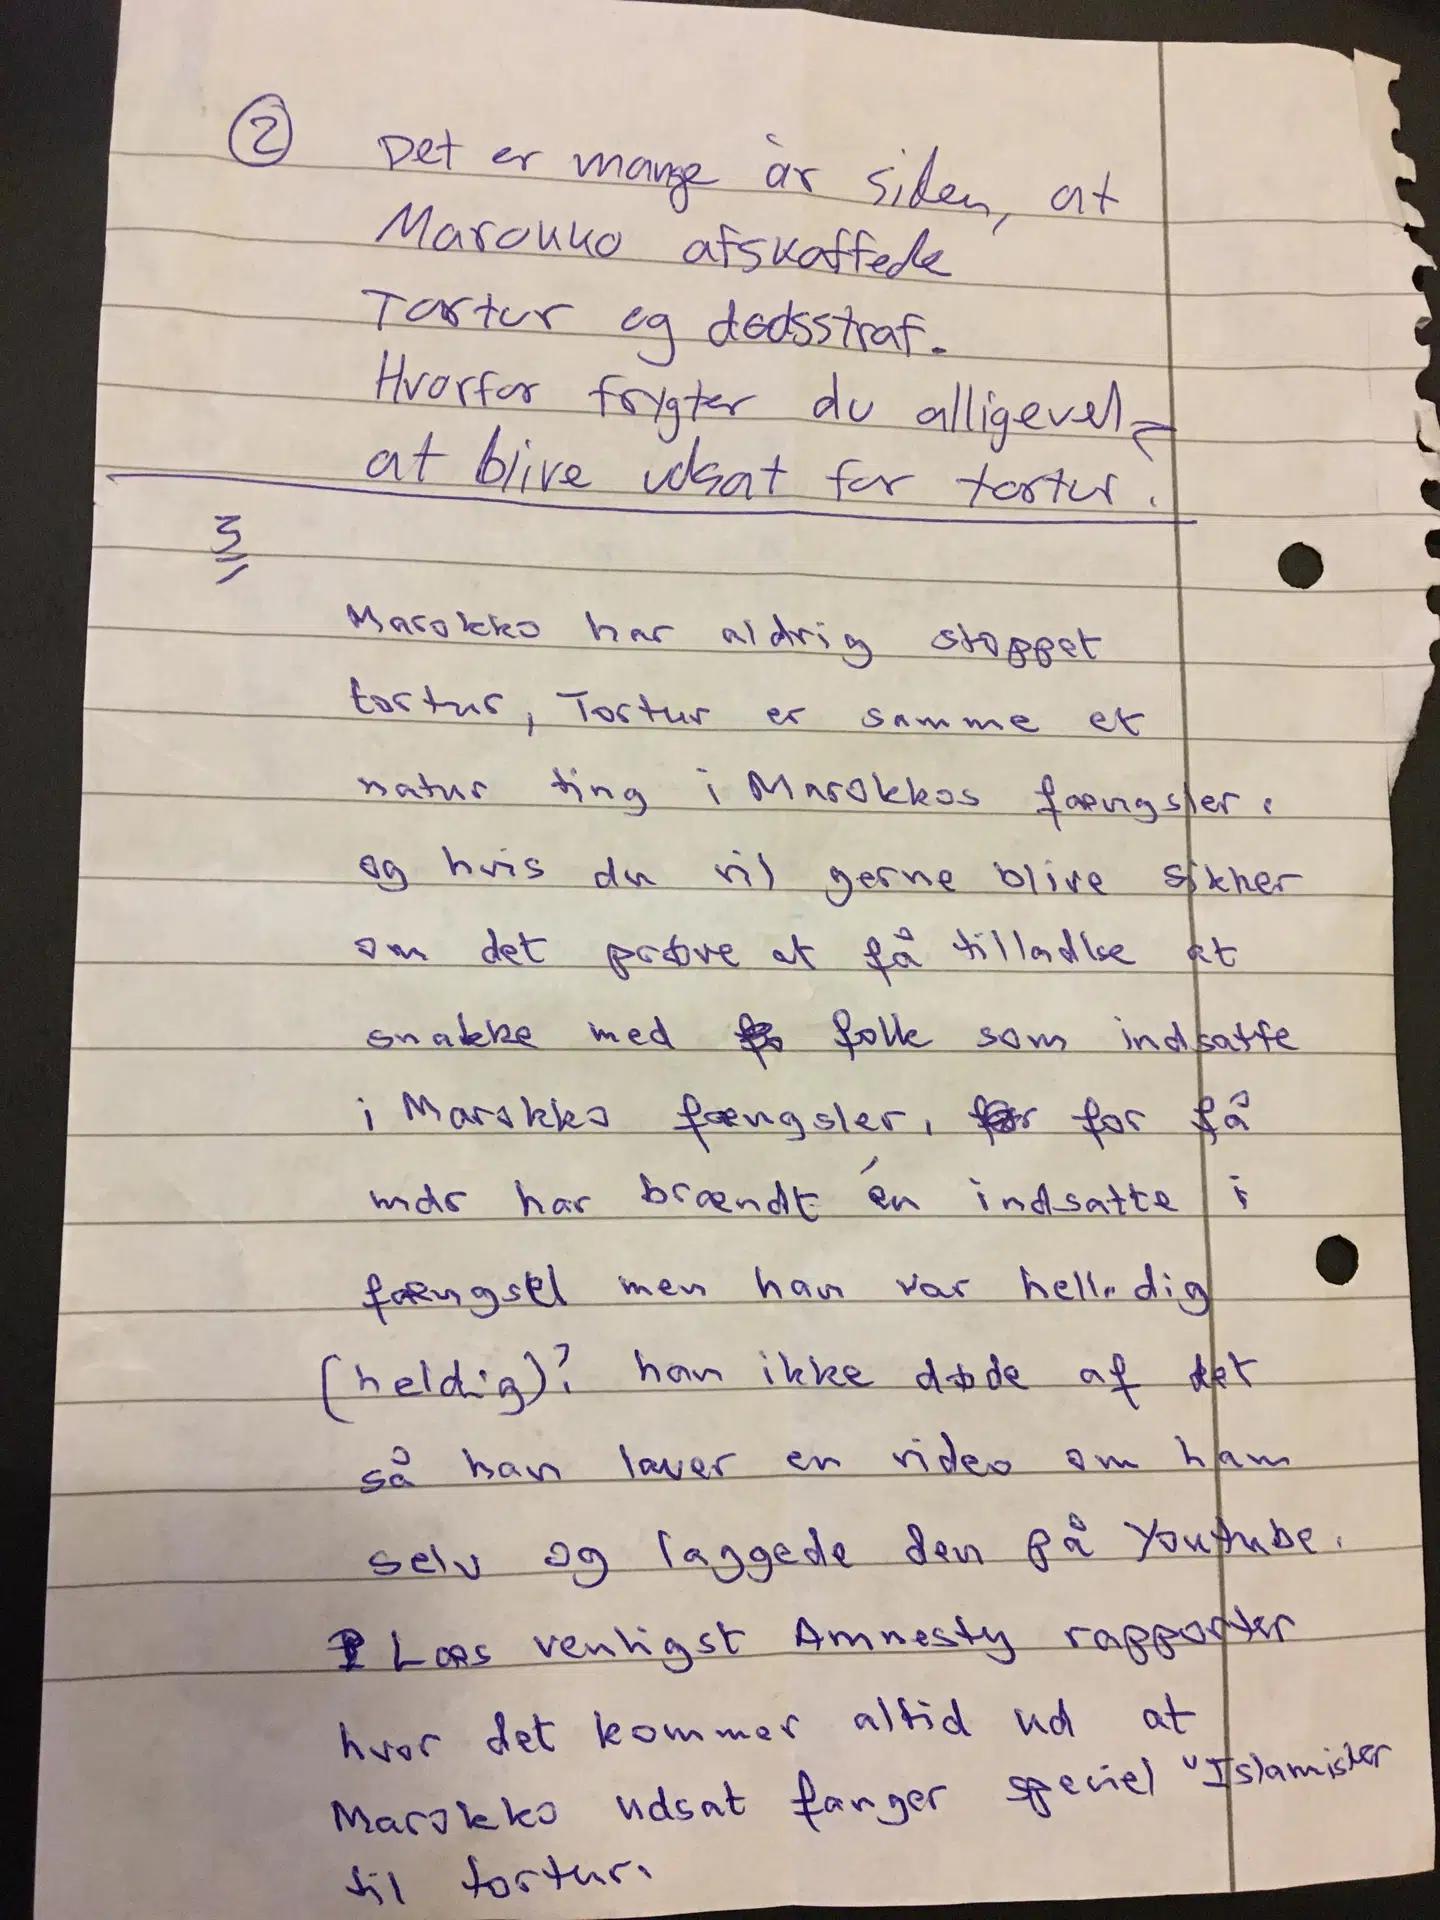 2 Det er mange år siden, at
Marokko afskaffede
Tortur og dødsstraf.
Hvorfor frygter du alligevel
at blive udsat for tortur.
3
Marokko har aldrig stoppet
tortur, Tortur er samme et
natur ting i Marokkos fængsler.
og hvis du vil gerne blive sikker
om det prøve at få tilladlse at
snakke med folk som indsatte
i Marokko fængsler, for få
mdr har brændt én indsatte i
fængsel men han var helldig
(heldig)? han ikke døde af det
så han laver en video om ham
selv og laggede den på Youtube.
Læs venligst Amnesty rapporter
hvor det kommer altid ud at
Marokko udsat fanger speciel "Islamister
til tortur.